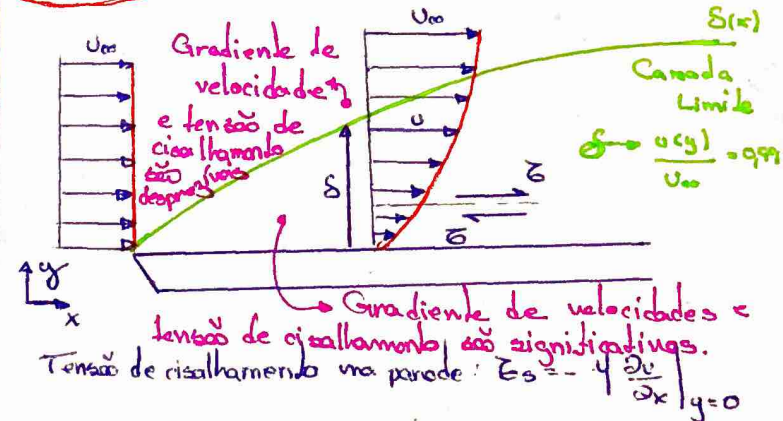 U∞
Gradiente de
velocidades
e tensão de
cisalhamento
são
desprezíveis
U∞
u
δ
δ(x)
Camada
Limite
δ → u(y)/U∞ = 0,99
τ
τ
y
x
Gradiente de velocidades e
tensão de cisalhamento são significativas.
Tensão de cisalhamento na parede: τs = - μ ∂u/∂x |y=0